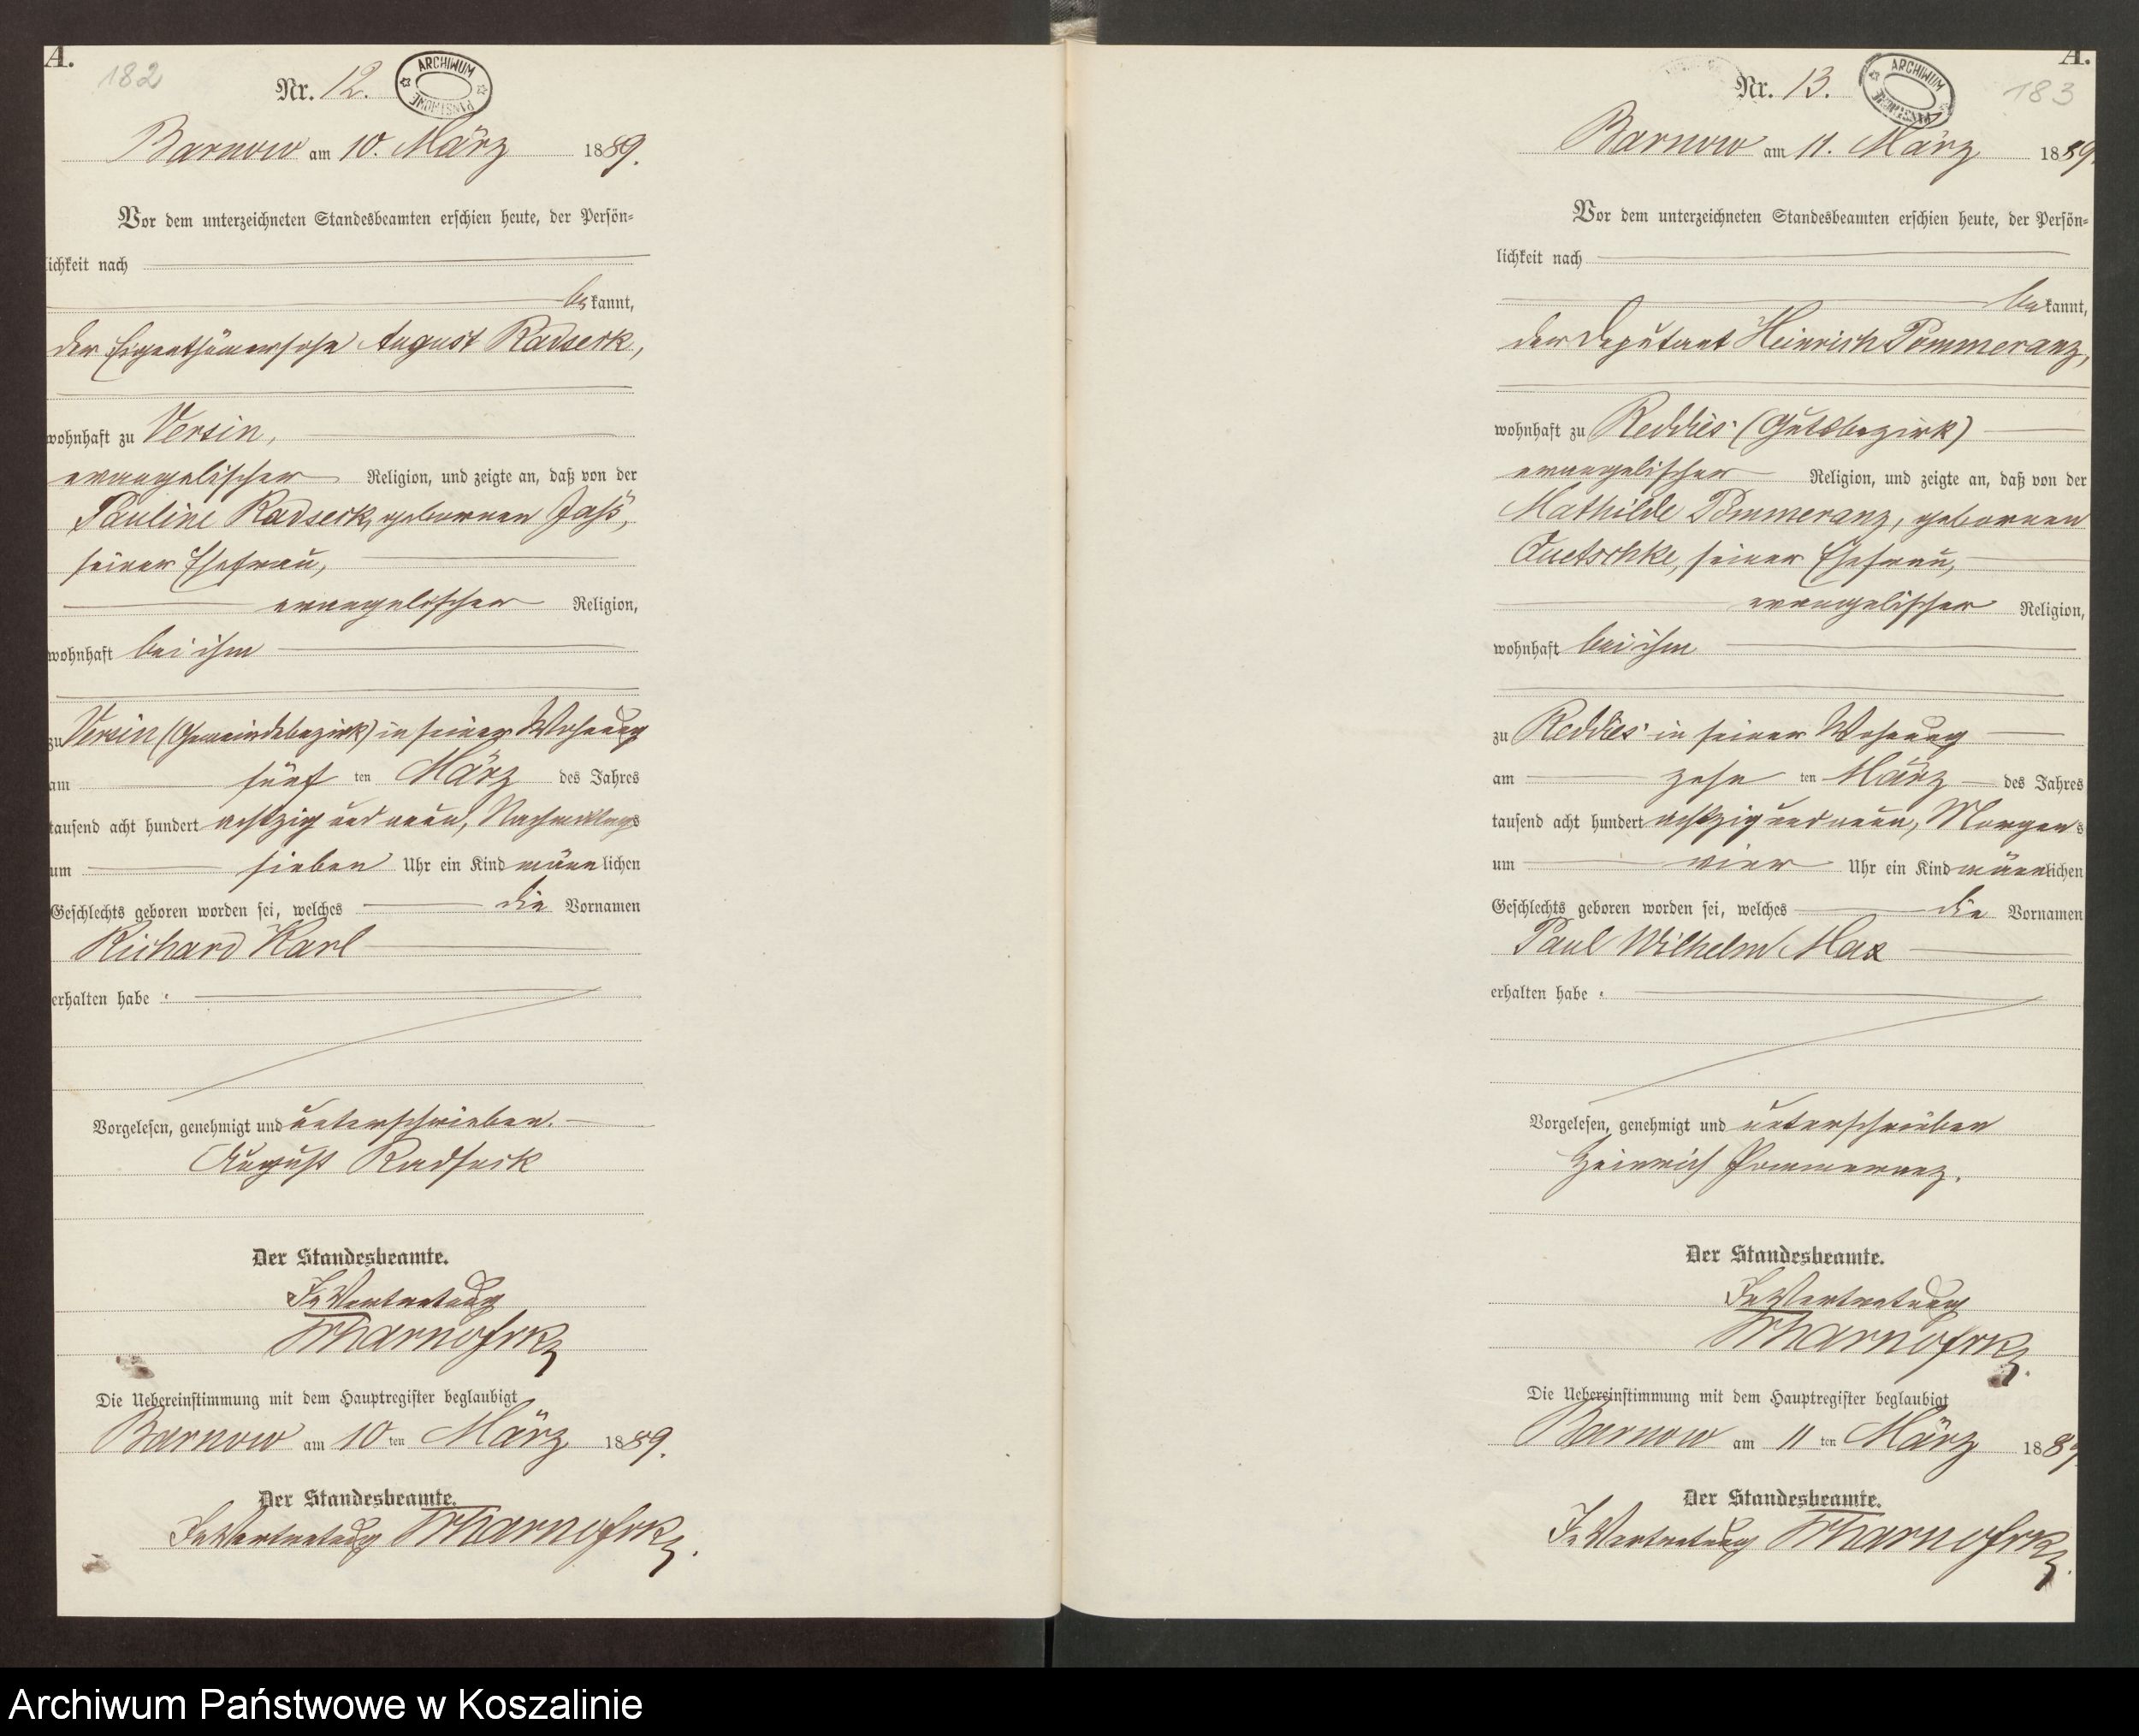 A.
182
Nr. 12.
ARCHIWUM
PAŃSTWOWE
Barnow am 10. März 1889.
Vor dem unterzeichneten Standesbeamten erschien heute, der Persön-
lichkeit nach
bekannt,
der Eigenthümersohn August Radseck,
wohnhaft zu Versin,
evangelischer Religion, und zeigte an, daß von der
Pauline Radseck, geborenen Jass,
seiner Ehefrau,
evangelischer Religion,
wohnhaft bei ihm
zu Versin (Gemeindebezirk) in seiner Wohnung
am fünf ten März des Jahres
tausend acht hundert achtzig und neun, Nachmittags
um sieben Uhr ein Kind männlichen
Geschlechts geboren worden sei, welches die Vornamen
Richard Karl
erhalten habe.
Vorgelesen, genehmigt und unterschrieben.
August Radseck
Der Standesbeamte.
In Vertretung
Die Uebereinstimmung mit dem Hauptregister beglaubigt
Barnow am 10 ten März 1889.
Der Standesbeamte.
In Vertretung
A.
183
Nr. 13.
ARCHIWUM
PAŃSTWOWE
Barnow am 11. März 1889.
Vor dem unterzeichneten Standesbeamten erschien heute, der Persön-
lichkeit nach
bekannt,
der Deputant Heinrich Pommeranz,
wohnhaft zu Reddies (Gutsbezirk)
evangelischer Religion, und zeigte an, daß von der
Mathilde Pommeranz, geborenen
Quetschke, seiner Ehefrau,
evangelischer Religion,
wohnhaft bei ihm
zu Reddies in seiner Wohnung
am zehn ten März des Jahres
tausend acht hundert achtzig und neun, Morgens
um vier Uhr ein Kind männlichen
Geschlechts geboren worden sei, welches die Vornamen
Paul Wilhelm Max
erhalten habe.
Vorgelesen, genehmigt und unterschrieben
Heinrich Pommeranz.
Der Standesbeamte.
In Vertretung
Die Uebereinstimmung mit dem Hauptregister beglaubigt
Barnow am 11 ten März 1889
Der Standesbeamte.
In Vertretung
Archiwum Państwowe w Koszalinie